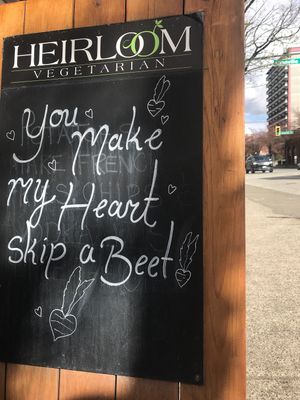 HEIRLOOM
VEGETARIAN
You Make
my Heart
skip a Beet